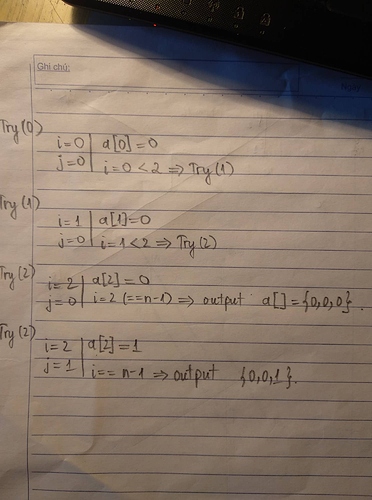 Ghi chú:
Try(0)
i=0 | a[0]=0
j=0 | i=0<2 => Try(1)
Try(1)
i=1 | a[1]=0
j=0 | i=1<2 => Try(2)
Try(2)
i=2 | a[2]=0
j=0 | i=2 (==n-1) => output a[]={0,0,0}.
Try(2)
i=2 | a[2]=1
j=1 | i== n-1 => output {0,0,1}.